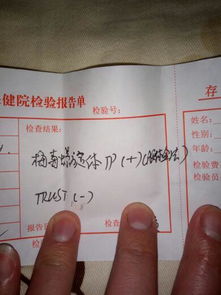 健院检验报告单
检验号：
检查结果：
梅毒螺旋体TP（+）（胶体金法）
TRUST（-）
报告日
存
姓名：
性别：
年龄：
检验费
检验员